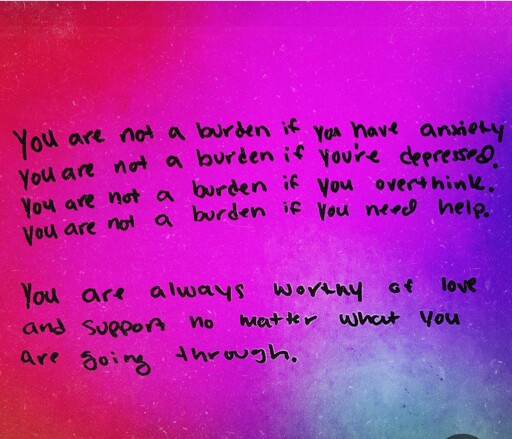 You are not a burden if you have anxiety
You are not a burden if you're depressed.
You are not a burden if you overthink.
You are not a burden if you need help.
You are always worthy of love
and support no matter what you
are going through.